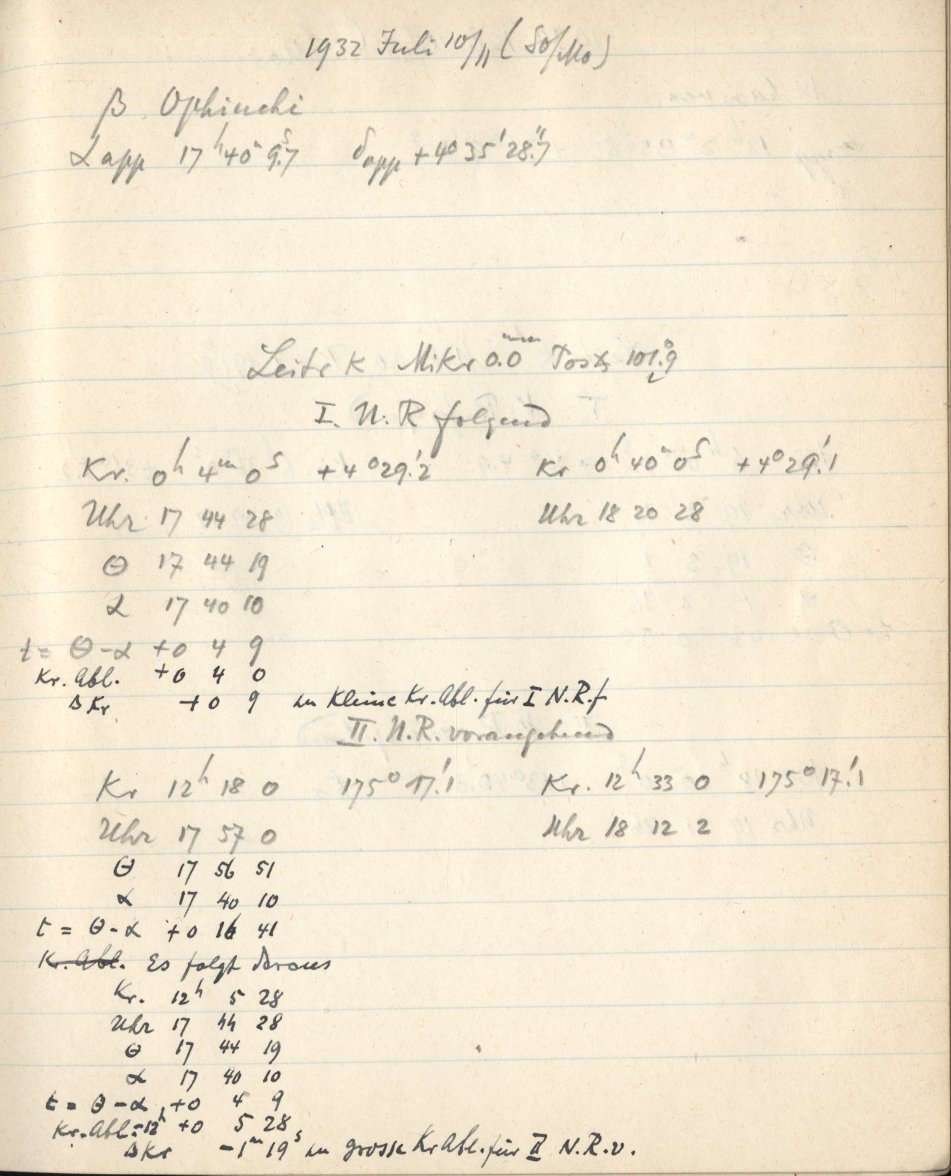 1932 Juli 10/11 (So/Mo)
β Ophiuchi
α app 17h 40m 9.s7 δapp +4° 35' 28."7
Leitr K Mikr 0.0 Pos 101.°9
I. N. R folgend
Kr. 0h 4m 0s +4° 29.'2 Kr 0h 40m 0s +4° 29.'1
Uhr 17 44 28 Uhr 18 20 28
Θ 17 44 19
α 17 40 10
t = Θ-α +0 4 9
Kr. Abl. +0 4 0
Δ Kr +0 9 an kleine Kr. Abl. für I N.R.f
II. N.R. vorangehend
Kr 12h 18 0 175° 17.'1 Kr. 12h 33 0 175° 17.'1
Uhr 17 57 0 Uhr 18 12 2
Θ 17 56 51
α 17 40 10
t = Θ-α +0 16 41
Kr. Abl. Es folgt daraus
Kr. 12h 5 28
Uhr 17 44 28
Θ 17 44 19
α 17 40 10
t = Θ-α +0 4 9
Kr. Abl.-12h +0 5 28
ΔKr -1m 19s an grosse Kr Abl. für II N.R.v.